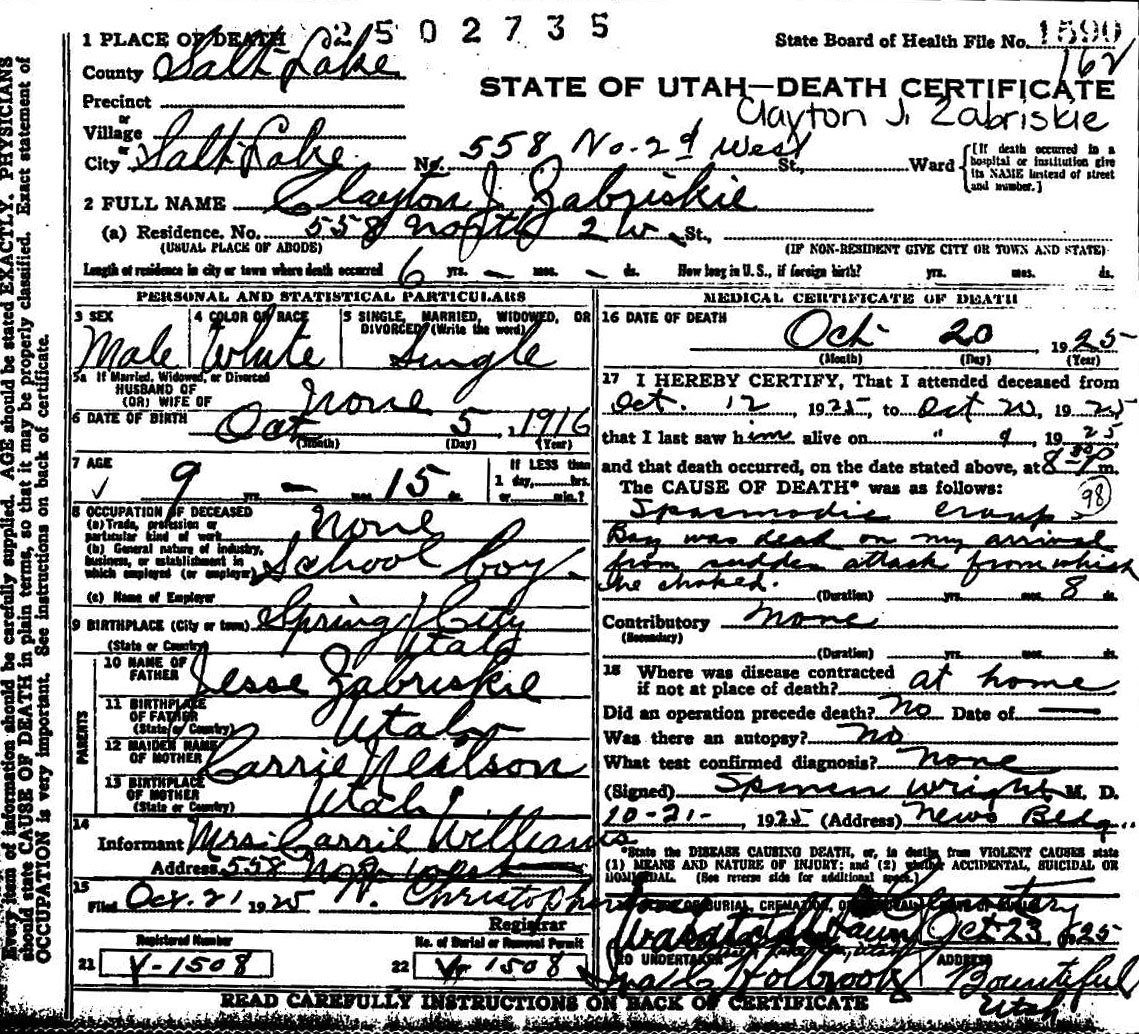 2502735
1 PLACE OF DEATH
State Board of Health File No. 1590
162
County Salt Lake
STATE OF UTAH—DEATH CERTIFICATE
Clayton J. Zabriskie
Precinct
or
Village
or
City Salt Lake No. 558 No. 2d West St., Ward
[If death occurred in a hospital or institution give its NAME instead of street and number.]
2 FULL NAME Clayton J. Zabriskie
(a) Residence. No. 558 North 2 W St.,
(USUAL PLACE OF ABODE) (IF NON-RESIDENT GIVE CITY OR TOWN AND STATE)
Length of residence in city or town where death occurred 6 yrs. — mos. — ds. How long in U. S., if foreign birth? yrs. mos. ds.
PERSONAL AND STATISTICAL PARTICULARS
3 SEX Male
4 COLOR OR RACE White
5 SINGLE, MARRIED, WIDOWED, OR DIVORCED (Write the word) Single
5a If Married, Widowed, or Divorced
HUSBAND OF
(OR) WIFE OF None
6 DATE OF BIRTH Oct 5, 1916
(Month) (Day) (Year)
7 AGE 9 yrs. — mos. 15 ds.
If LESS than 1 day, hrs. or min.?
8 OCCUPATION OF DECEASED
(a) Trade, profession or particular kind of work None
(b) General nature of industry, business, or establishment in which employed (or employer) School boy
(c) Name of Employer
9 BIRTHPLACE (City or town) Spring City
(State or Country) Utah
PARENTS
10 NAME OF FATHER Jesse Zabriskie
11 BIRTHPLACE OF FATHER (State or Country) Utah
12 MAIDEN NAME OF MOTHER Carrie Nealson
13 BIRTHPLACE OF MOTHER (State or Country) Utah
14
Informant Mrs. Carrie Williams
Address 558 No 2 West
15
Filed Oct. 21 1925 W. Christopherson
Registrar
Registered Number
21 V-1508
No. of Burial or Removal Permit
22 V- 1508
MEDICAL CERTIFICATE OF DEATH
16 DATE OF DEATH
Oct 20 1925
(Month) (Day) (Year)
17 I HEREBY CERTIFY, That I attended deceased from
Oct. 12, 1925, to Oct 20, 1925
that I last saw him alive on " 9 1925
and that death occurred, on the date stated above, at 8 30 P m.
The CAUSE OF DEATH* was as follows:
98
Spasmodic croup
Boy was dead on my arrival
from sudden attack from which
he choked.
(Duration) yrs. mos. 8 ds.
Contributory None
(Secondary)
(Duration) yrs. mos. ds.
18 Where was disease contracted
if not at place of death? at home
Did an operation precede death? No Date of —
Was there an autopsy? No
What test confirmed diagnosis? None
(Signed) Wright M. D.
10-21- 1925 (Address) News Bldg.
*State the DISEASE CAUSING DEATH, or, in deaths from VIOLENT CAUSES state
(1) MEANS AND NATURE OF INJURY; and (2) whether ACCIDENTAL, SUICIDAL OR
HOMICIDAL. (See reverse side for additional space.)
OF BURIAL, CREMATION, OR
Oct 23 1925
20 UNDERTAKER Holbrook
ADDRESS Bountiful
Utah
READ CAREFULLY INSTRUCTIONS ON BACK OF CERTIFICATE
Every item of information should be carefully supplied. AGE should be stated EXACTLY. PHYSICIANS
should state CAUSE OF DEATH in plain terms, so that it may be properly classified. Exact statement of
OCCUPATION is very important. See instructions on back of certificate.